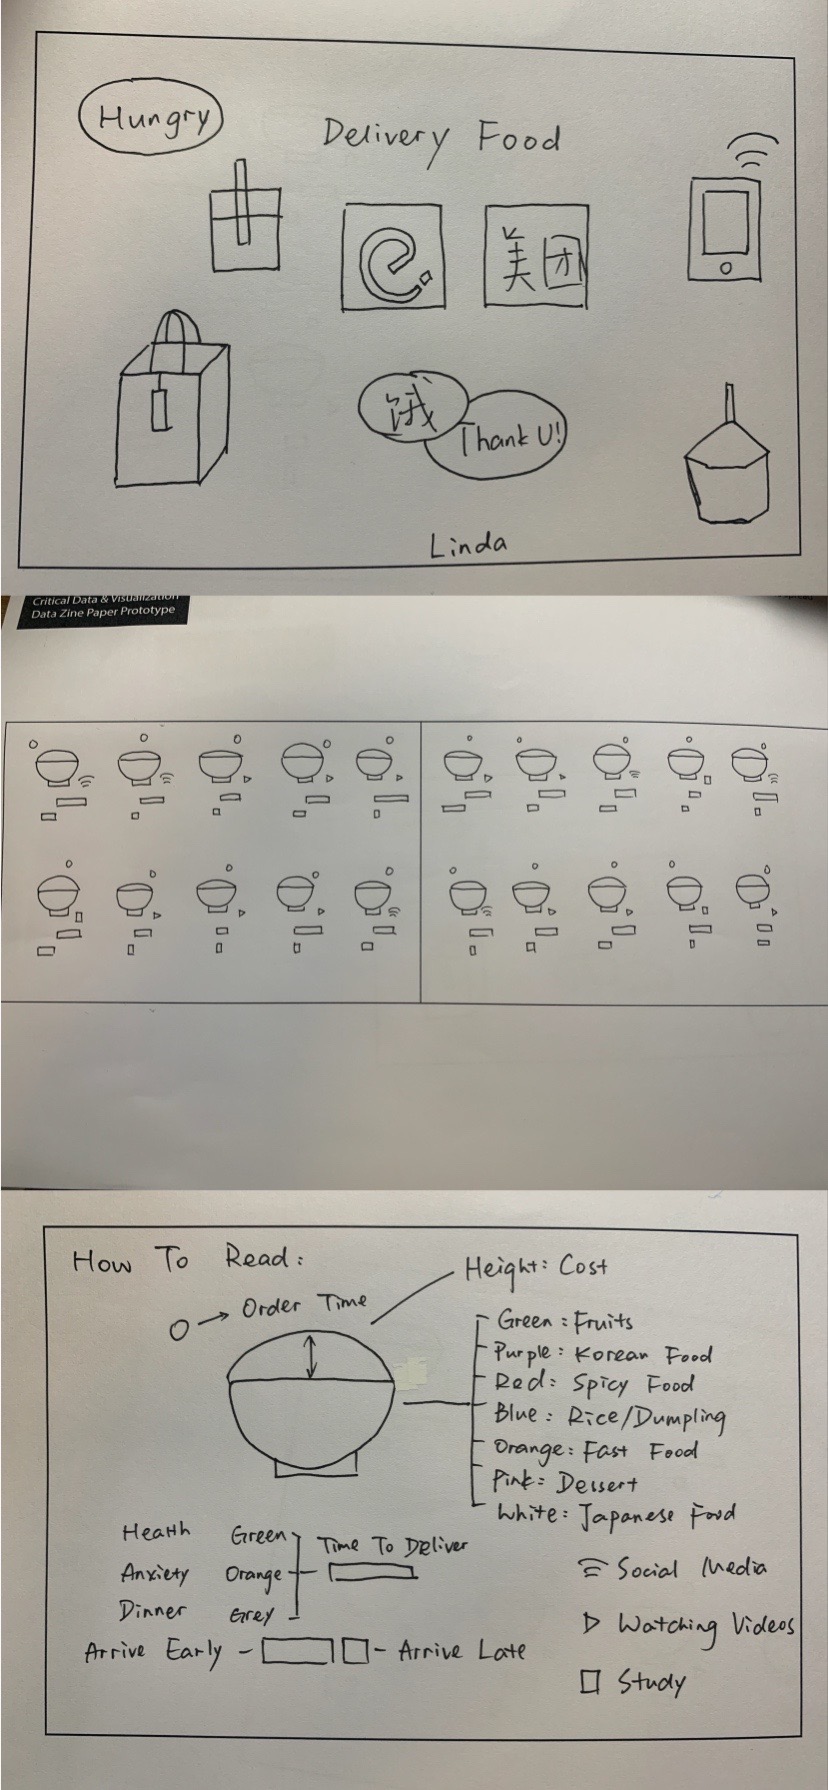 Hungry
Delivery Food
美团
饿
Thank U!
Linda
Critical Data & Visualization
Data Zine Paper Prototype
How To Read:
Height: Cost
Order Time
Green: Fruits
Purple: Korean Food
Red: Spicy Food
Blue: Rice/Dumpling
Orange: Fast Food
Pink: Dessert
White: Japanese Food
Health Green
Time To Deliver
Anxiety Orange
Dinner Grey
Social Media
Watching Videos
Arrive Early - - Arrive Late
Study